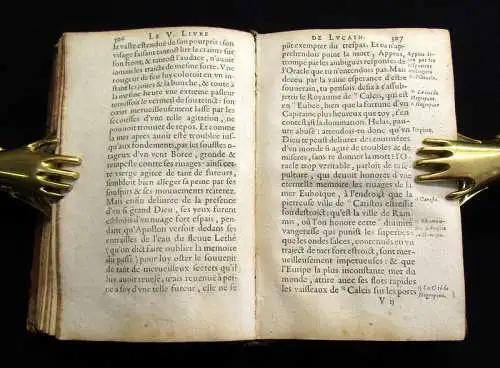 306 LE V. LIVRE
la vaste estenduë de son pourpris: son
visage faisant tantost lire la crainte sur
son front, & tantost l'audace, n'auoit
iamais les traicts de mesme sorte. Vne
rougeur de feu luy coloroit en vn in-
stant les ioües & la bouche, & tout à
la mesme heure vne extreme pasleur
ternissoit le vermeil de son teinct: son
cœur merueilleusement lassé par les
secousses d'vne telle agitation, ne
pouuoit trouuer de repos. Et comme
la mer apres auoir esté troublee ius-
qu'aux fondements, par les souffles o-
rageux d'vn vent Boree, gronde &
murmure contre ses riuages: ainsi ceste
vierge agitee de tant de fureurs,
sembloit bien alleger sa peine par ses
souspirs & ses mouuements reïterez.
Mais ensin deliuree de la presence
d'vn si grand Dieu, ses yeux furent
esbloüis d'vn nuage fort espais, pen-
dant qu'Apollon versoit dedans ses
entrailles de l'eau du fleuue Lethé
(qu'on dict faire oublier la memoire
du passé) pour luy oster le souuenir
de tant de merueilleux secrets qu'elle
luy auoit reuelé, mais reuenuë à pei-
ne à soy d'vne telle fureur, elle ne se
DE LVCAIN. 307
pût exempter du trespas. Et tu n'ap-
prehendois point la mort, Appius,
trompé par les ambiguës responses de
l'Oracle que tu n'entendois pas. Mais
deceu par la vaine esperance d'estre
souuerain, tu pensois desia t'assub-
iectir le Royaume de Calcis, qui est
en Eubee, bien que la fortune d'vn
Capitaine plus heureux que toy, t'en
contestast la domination. Helas, pau-
ure abusé! attendois-tu donc qu'vn
Dieu te peust deliurer des
d'vn monde si agité de troubles & de
miseres, sans te donner la mort: l'O-
racle trop veritable, parloit de ta se-
pulture, qui deuoit honorer d'vne
eternelle memoire les riuages de la
mer Euboïque, à l'endroict que la
pierreuse ville de Caristos estressit
son destroict: qu'est la ville de Ram-
nis, où l'on honore cette diuinité
vangeresse qui punist les superbes:
que les ondes salees, contenuës en vn
traject de mer fort estroict, sont mer-
ueilleusement impetueuses: & que
l'Euripe la plus inconstante mer du
monde, attire auec ses flots rapides
les vaisseaux de Calcis sur les ports
V ij
Appius
Calcis ou
Negrepont